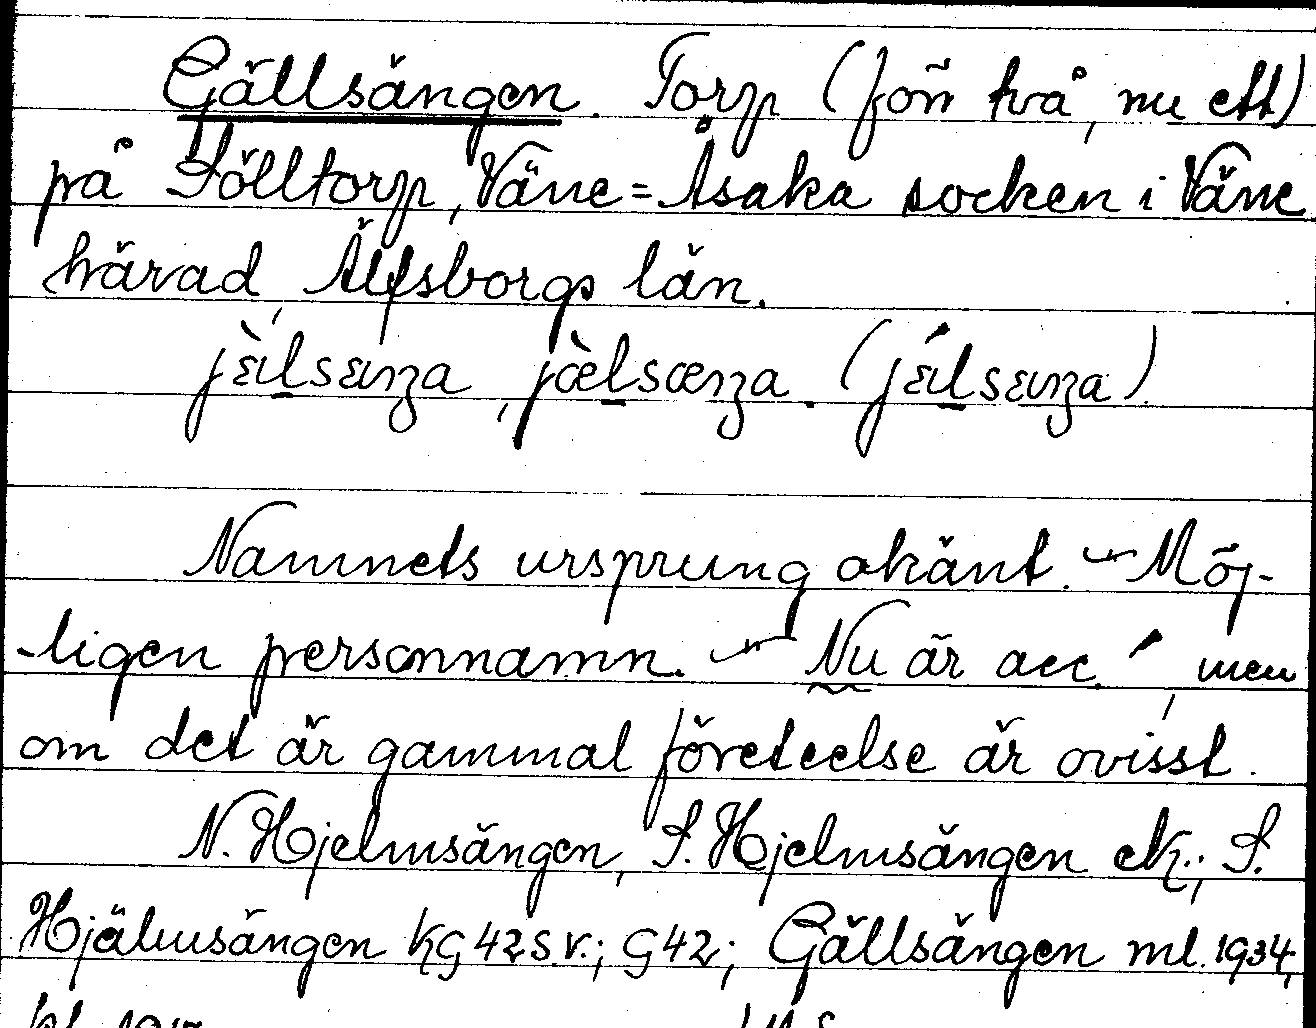 Gällsängen. Torp (förr två, nu ett)
på Fölltorp, Väne=Åsaka socken i Väne
härad, Älfsborgs län.
jɛ̀ılsɛıŋa, jæ̀lsæŋa. (jɛ́ılsɛıŋa)
Namnets ursprung okänt. – Möj-
-ligen personnamn. – Nu är acc. ´, men
om det är gammal företeelse är ovisst.
N. Hjelmsängen, S. Hjelmsängen ek.; S.
Hjälmsängen KG 42 S v.; G 42; Gällsängen ml. 1934,